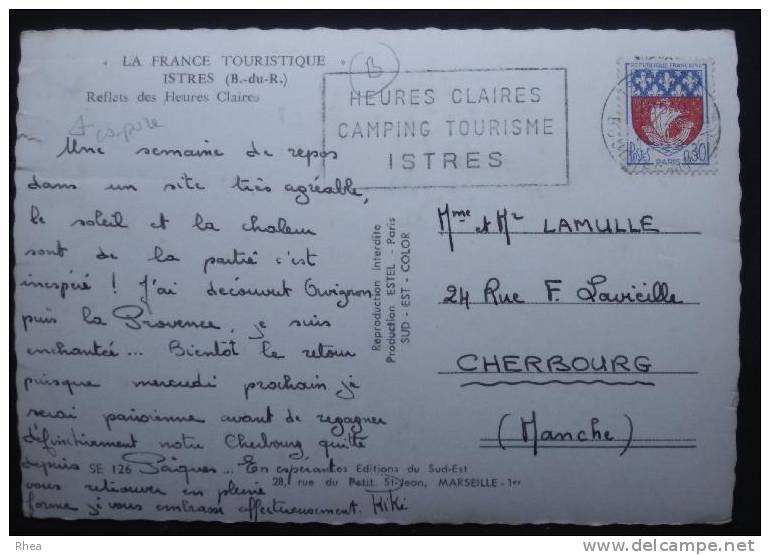 LA FRANCE TOURISTIQUE
ISTRES (B.-du-R.)
Reflets des Heures Claires
B
HEURES CLAIRES
CAMPING TOURISME
ISTRES
REPUBLIQUE FRANÇAISE
POSTES PARIS 0,30
Une semaine de repos
dans un site très agréable,
le soleil et la chaleur
sont de la partie c'est
inespéré ! J'ai découvert Avignon
puis la Provence, je suis
enchantée... Bientôt le retour
puisque mercredi prochain je
serai parisienne avant de regagner
définitivement notre Cherbourg quitté
depuis Pâques... En espérant
vous retrouver en pleine
forme je vous embrasse affectueusement. Kiki
SE 126
Editions du Sud-Est
28, rue du Petit St-Jean, MARSEILLE-1er
Reproduction interdite
Production ESTEL - Paris
SUD - EST - COLOR
Mme et Mr LAMULLE
24 Rue F. Lavieille
CHERBOURG
(Manche)
Rhea
delcampe.net